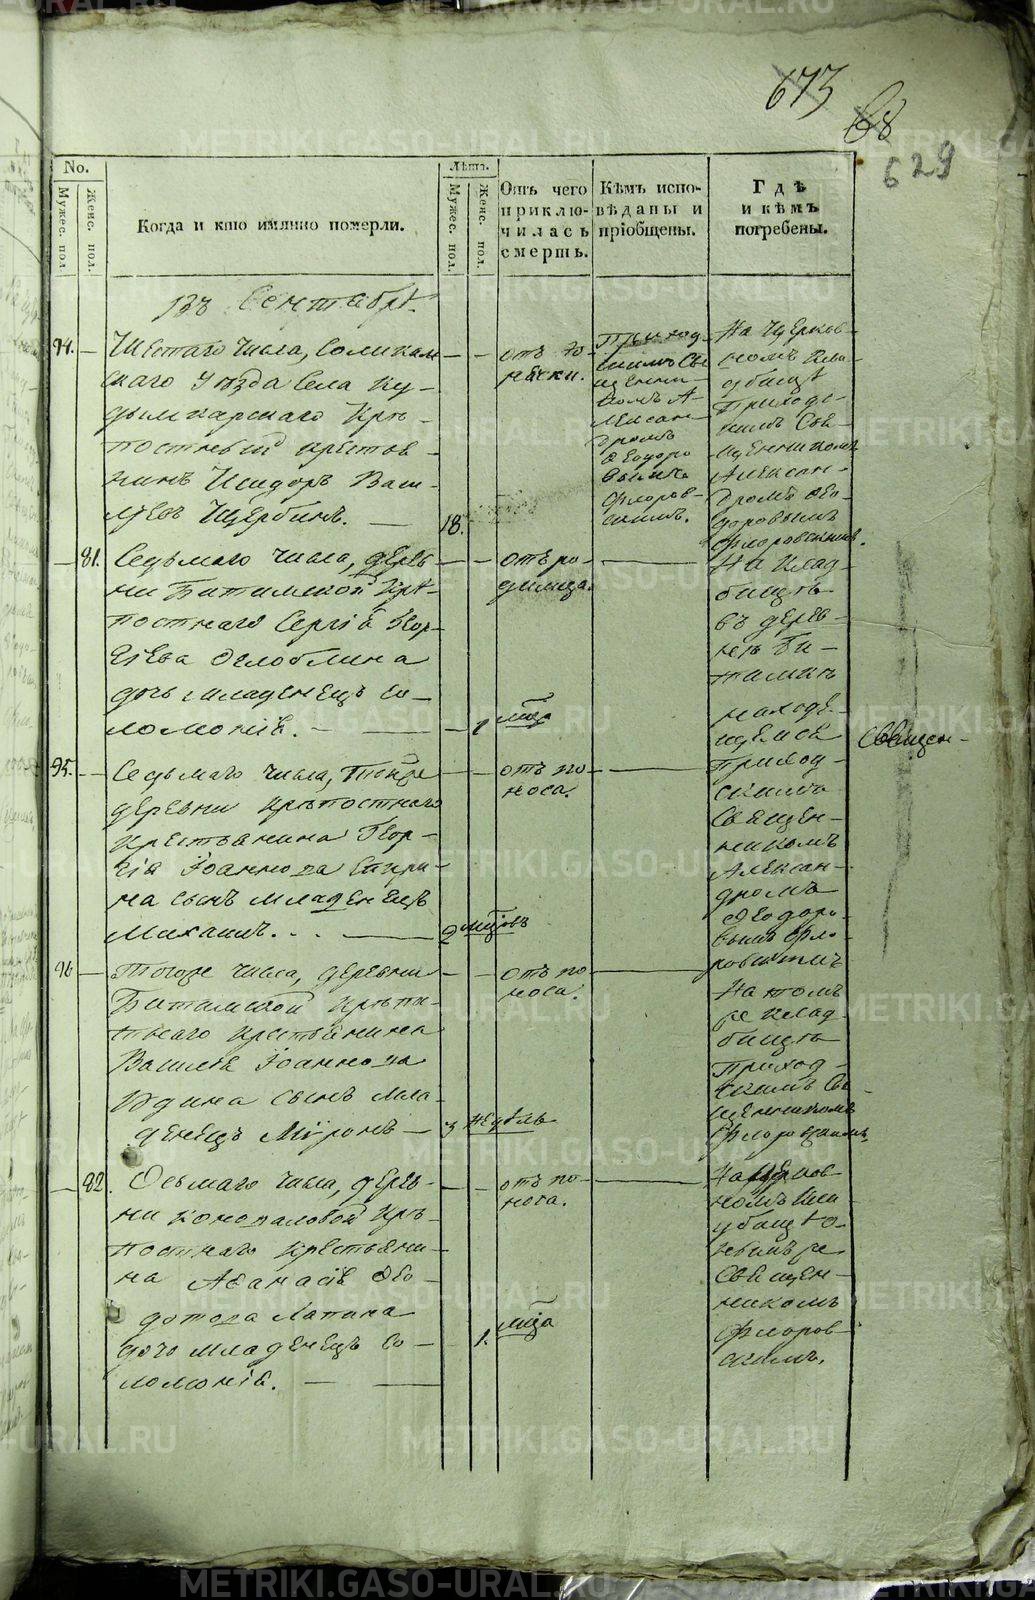 673
68
629
No.
Мужес. пол
Женс. пол.
Когда и кто имянно померли.
Лѣта.
Мужес. пол.
Женс. пол.
Отъ чего
приклю-
чилась
смерть.
Кѣмъ испо-
вѣданы и
пріобщены.
Гдѣ
и кѣмъ
погребены.
Въ Сентябрѣ.
94.
Шестаго числа, Соликам
скаго уѣзда села Ку-
дымкарскаго Крѣ-
постный крестья-
нинъ Исидоръ Васи-
льевъ Щербинъ.
18.
отъ го-
рячки.
Приход
скимъ Свя
щенни-
комъ А-
лександромъ
Ѳеодоро
вымъ
Флоров-
скимъ.
На Церков-
номъ кла-
дбищѣ
Приход-
скимъ Свя-
щенникомъ
Алексан-
дромъ Ѳео-
доровымъ
Флоровскимъ.
81.
Седьмаго числа, дерев-
ни Битимской Крѣ-
постнаго Сергія Геор-
гіева Оглоблина
дочь младенецъ Со-
ломонія.
1 мца
отъ ро-
димца.
На клад-
бищѣ
въ дерев-
нѣ Би-
тимкѣ
находя-
щемся
Приход-
скимъ
Священ-
никомъ
Алексан-
дромъ
Ѳеодоро-
вымъ Фло-
ровскимъ
Священ-
95.
Седьмаго числа, Тойже
деревни крѣпостнаго
крестьянина Геор-
гія Іоаннова
на сынъ младенецъ
Михаилъ.
2 мцовъ
отъ по
носа.
96
Тогоже числа, деревни
Битимской Крѣпо-
стнаго крестьянина
Василія Іоаннова
Юдина сынъ мла-
денецъ Миронъ
3 недѣль
отъ по
носа.
На томъ
же клад
бищѣ
Приход-
скимъ Свя
щенникомъ
Флоровскимъ.
82.
Осьмаго числа, дерев-
ни Коноваловой крѣ-
постнаго крестьяни-
на Аѳанасія Ѳео-
дотова Лапина
дочь младенецъ Со-
ломонія.
1. мца
отъ по-
носа.
На церков-
номъ кла
дбищѣ о-
нымъ же
Священ-
никомъ
Флоров-
скимъ.
METRIKI.GASO-URAL.RU